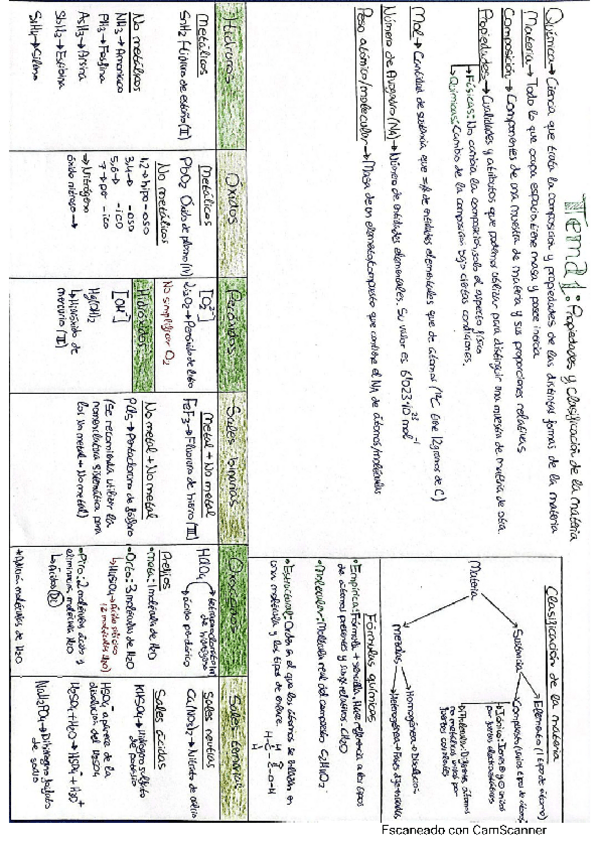 Tema 1: Propiedades y clasificación de la materia
Química → Ciencia que trata la composición y propiedades de las distintas formas de la materia
Materia → Todo lo que ocupa espacio, tiene masa y posee inercia
Composición → Componentes de una muestra de materia y sus proporciones relativas
Propiedades → Cualidades y atributos que podemos utilizar para distinguir una muestra de materia de otra.
→ Físicas: No cambia la composición, solo el aspecto físico
→ Químicas: Cambio de la composición bajo ciertas condiciones.
Mol → Cantidad de sustancia que entidades elementales que de átomos (12C tiene 12 gramos de C)
Número de Avogadro (NA) → Número de entidades elementales. Su valor es 6'023·10 23 mol -1
Peso atómico/molecular → Masa de un elemento/compuesto que contiene el NA de átomos/moléculas
Clasificación de la materia
Materia
Sustancia
Elemento (1 tipo de átomo)
Compuesto (varios tipos de átomos)
Mezclas
Homogénea → Disolución
Heterogénea → Fases
Fórmulas químicas
• Empírica: Fórmula + sencilla. Hace referencia a los tipos
de átomos presentes y sus relativos. CH2O
• Molecular: Molécula real del compuesto C2H4O2
• Estructural: Orden en el que los átomos se enlazan en
una molécula y los tipos de enlace
Hidruros
Metálicos
SnH2 → Hidruro de estaño (II)
No metálicos
NH3 → Amoniaco
PH3 → Fosfina
AsH3 → Arsina
SbH3 → Estibina
SiH4 → Silano
Óxidos
Metálicos
PbO2 Óxido de plomo (IV)
No metálicos
1,2 → hipo - oso
3,4 → - oso
5,6 → - ico
7 → per - ico
→ Nitrógeno
óxido nitroso →
Peróxidos
[O2 2-]
Li2O2 → Peróxido de litio
No simplificar O2
Hidróxidos
[OH-]
Hg(OH)2
↳ Hidróxido de
mercurio (II)
Sales binarias
Metal + No metal
FeF3 → Fluoruro de hierro (III)
No metal + No metal
PCl5 → Pentacloruro de fósforo
(Se recomienda utilizar la
nomenclatura sistemática para
los No metal + No metal)
Oxoácidos
HClO4
de hidrógeno
ácido perclórico
Prefijos
• Meta: 1 molécula de H2O
• Orto: 3 moléculas de H2O
• Piro: 2 moléculas ácido y
elimina molécula H2O
Sales ternarias
Sales neutras
Ca(NO3)2 → Nitrato de calcio
Sales ácidas
KHSO4 → Hidrógeno sulfato
de potasio
HSO4- a partir de la
disolución del H2SO4
H2SO4 + H2O → HSO4- + H3O+
NaH2PO4 → Dihidrógeno fosfato
de sodio
Escaneado con CamScanner